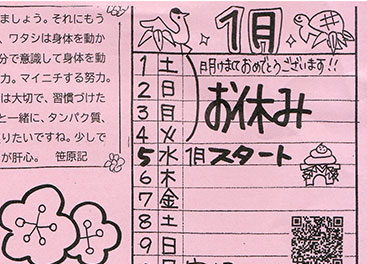 ましょう。それにもう
、ワタシは身体を動か
分で意識して身体を動
力。マイニチする努力。
は大切で、習慣づけた
と一緒に、タンパク質、
りたいですね。少しで
が肝心。 笹原記
1月
1 土 明けましておめでとうございます!!
2 日 お休み
3 月
4 火
5 水 1月スタート
6 木
7 金
8 土
9 日